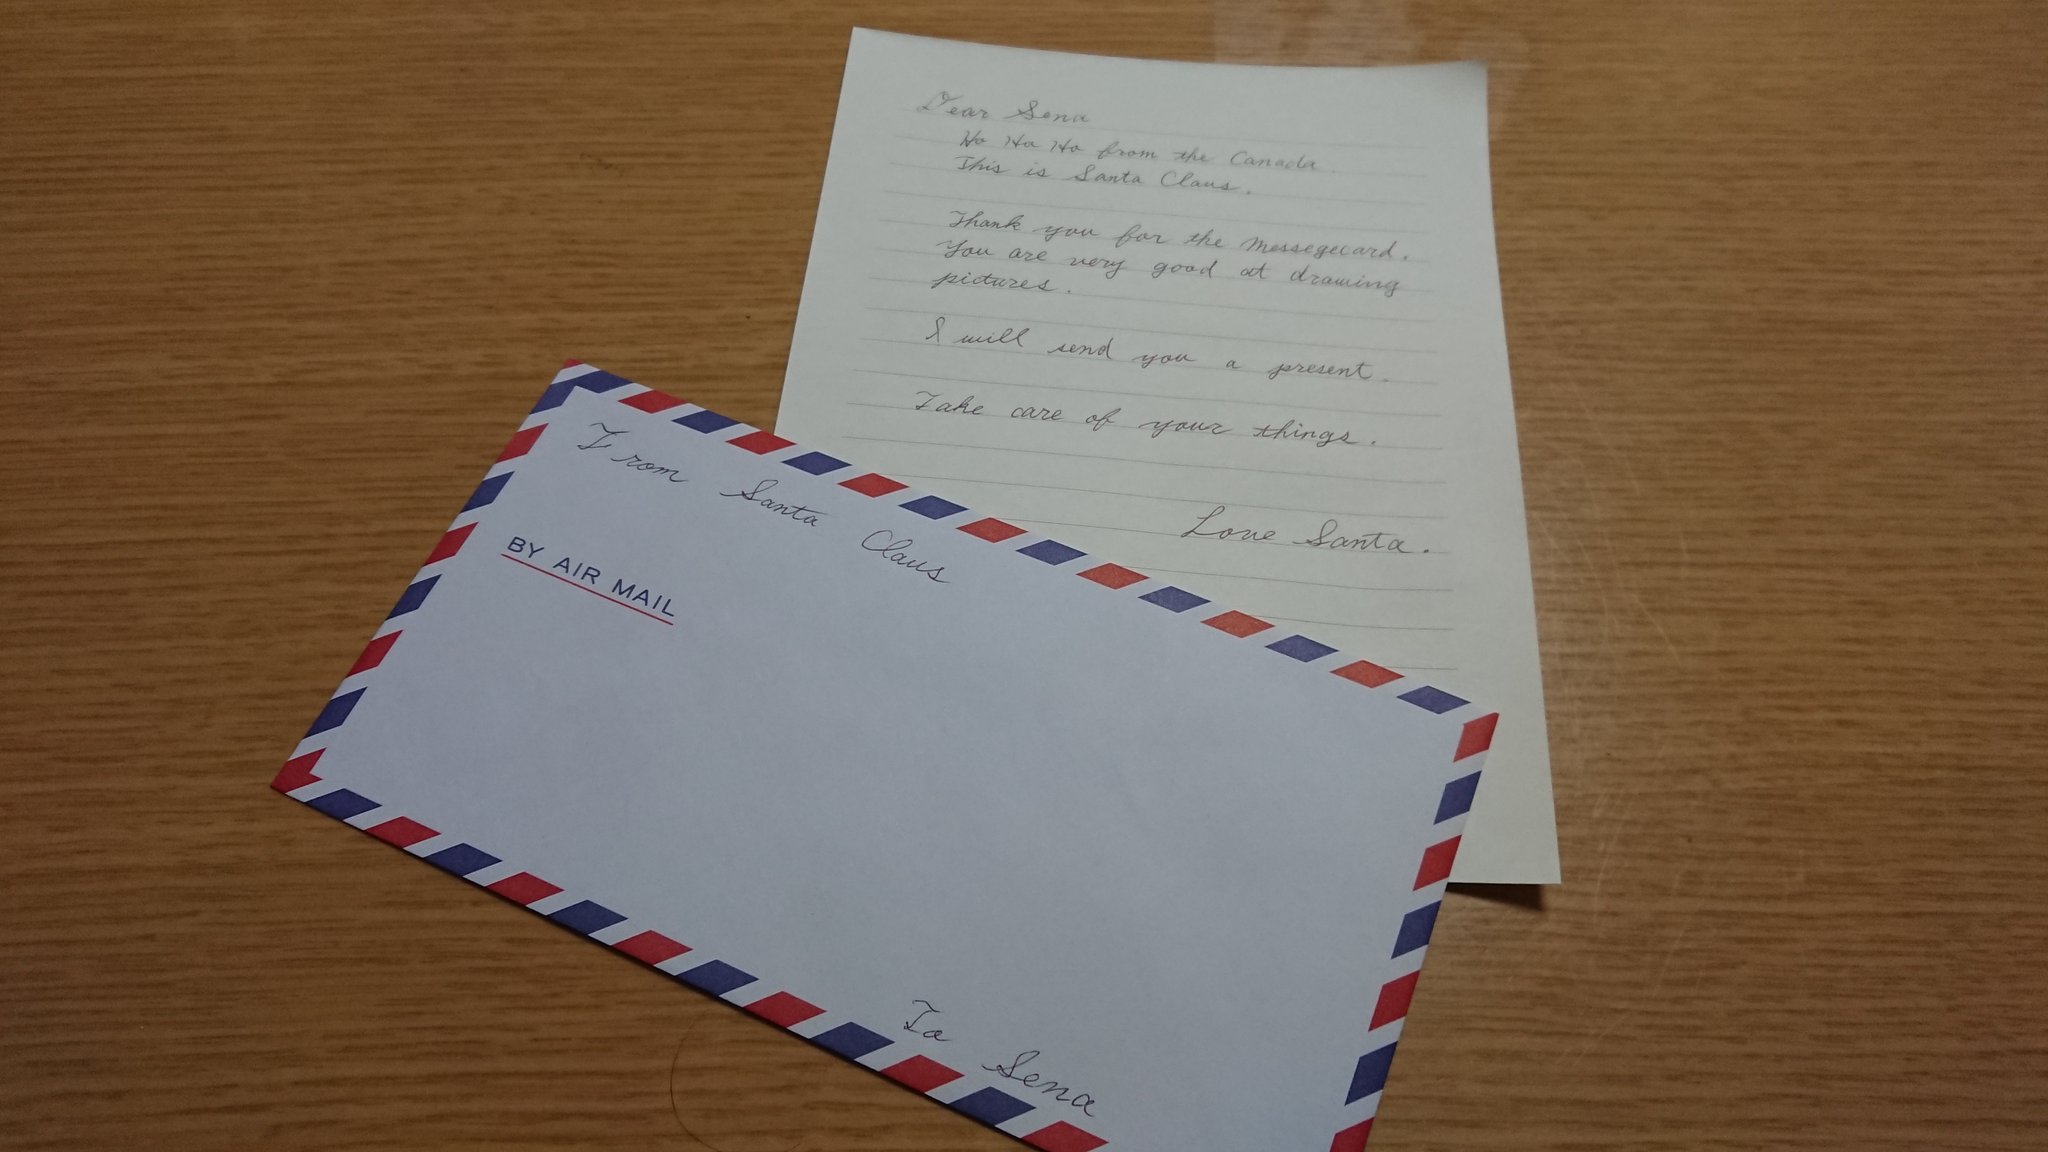 Dear Sena
Ho Ho Ho from the Canada.
This is Santa Claus.
Thank you for the messegecard.
You are very good at drawing
pictures.
I will send you a present.
Take care of your things.
Love Santa.
From Santa Claus
BY AIR MAIL
To Sena